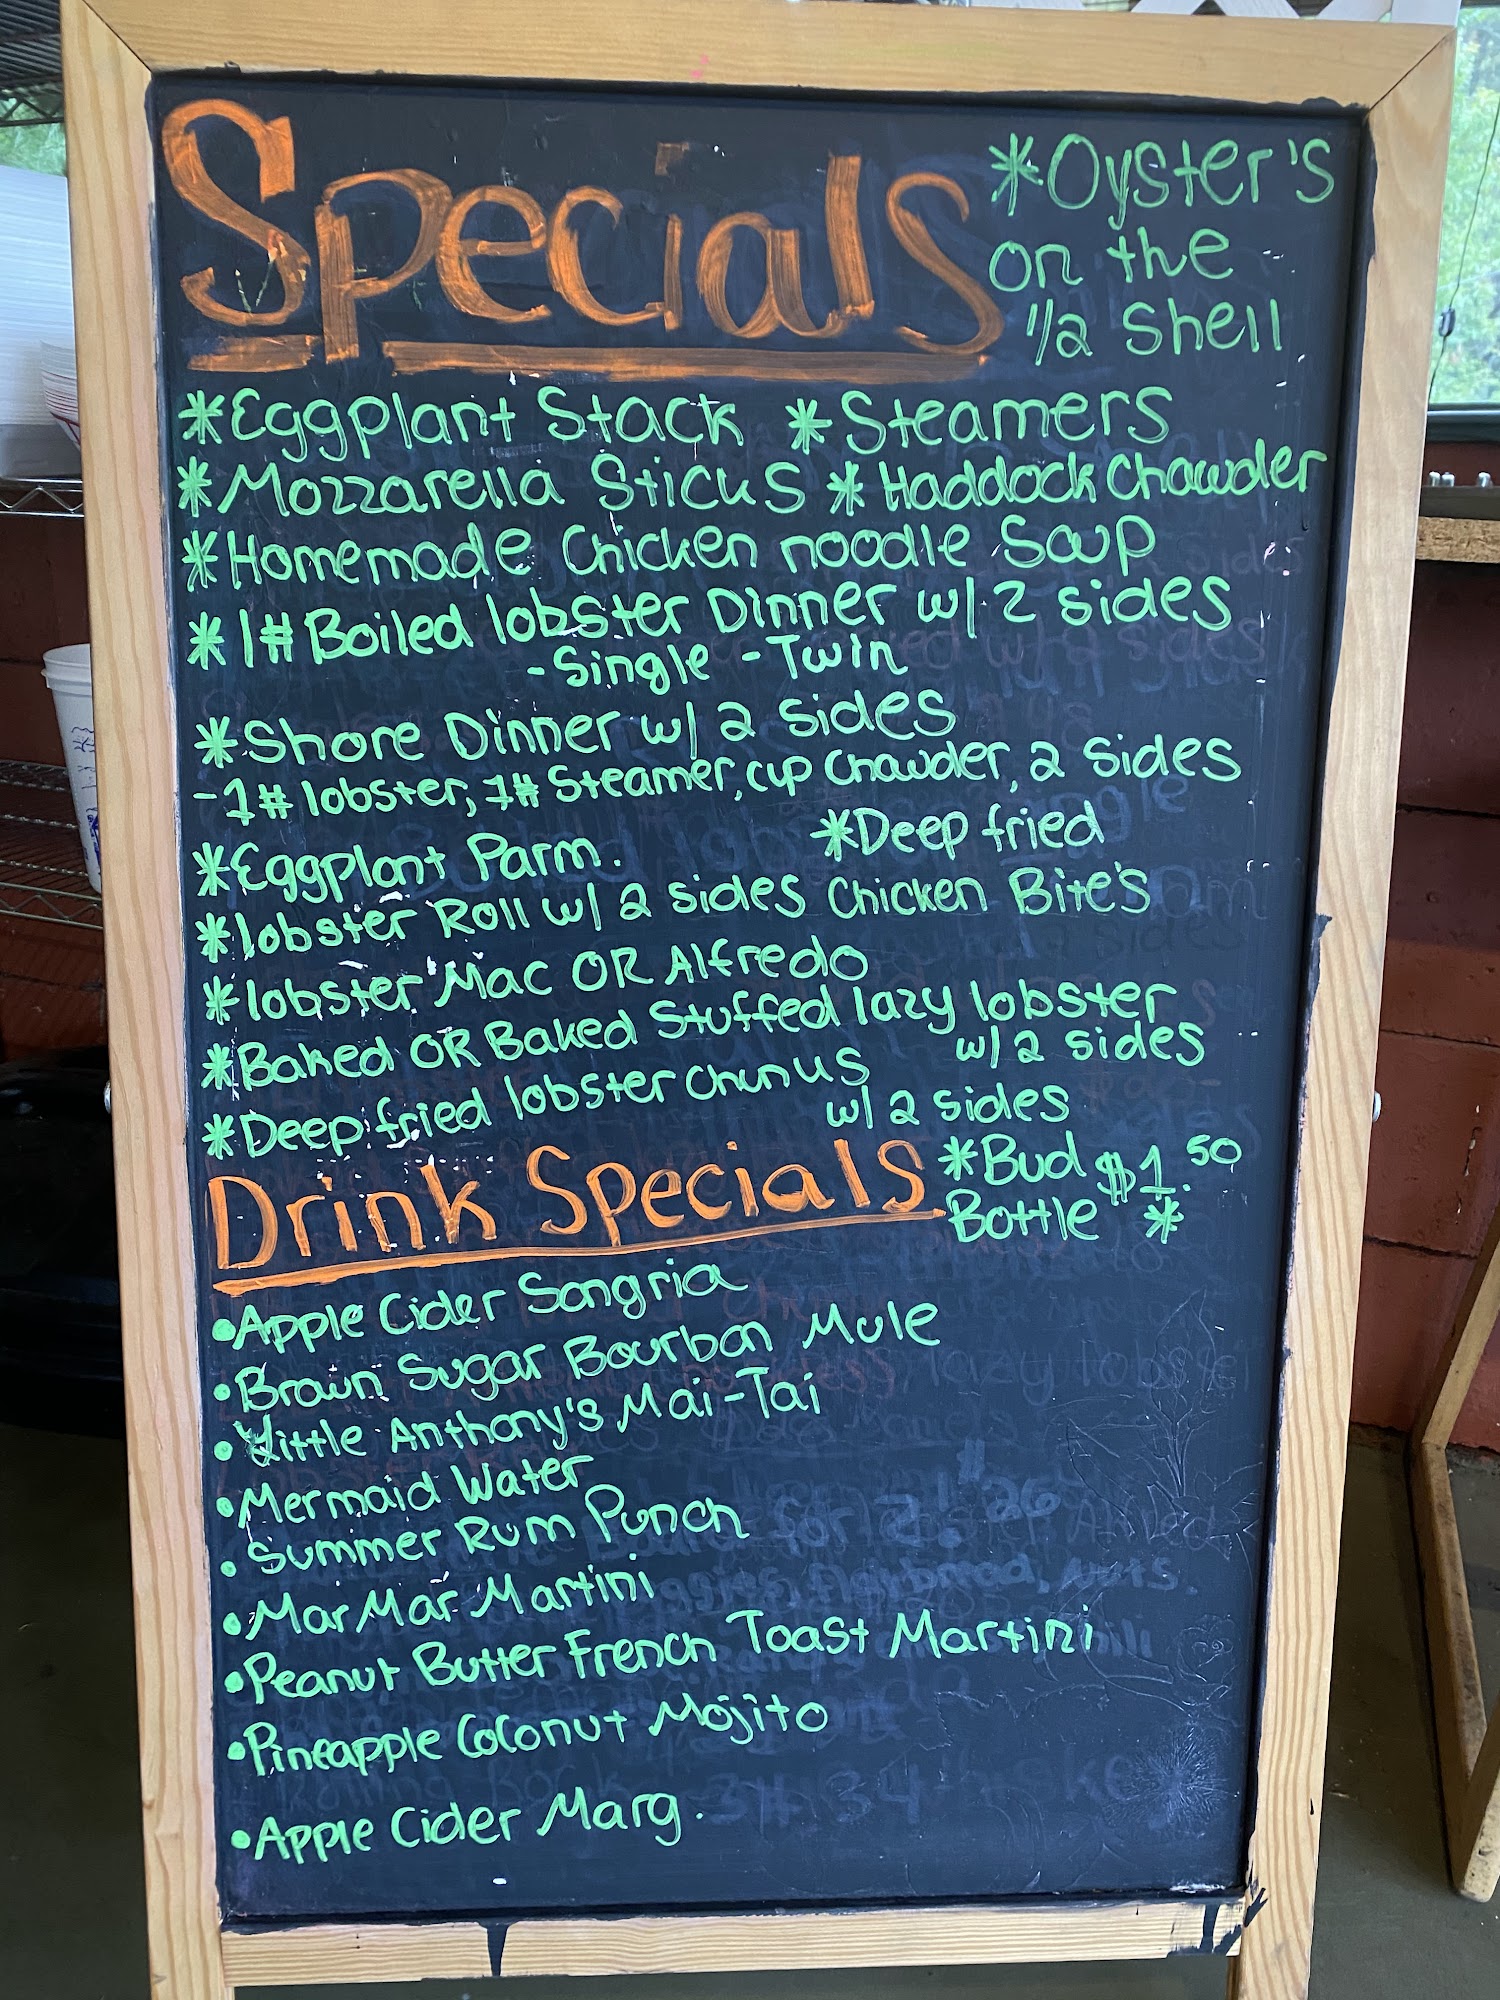 Specials
*Oyster's
on the
1/2 Shell
*Eggplant Stack *Steamers
*Mozzarella Sticks *Haddock Chowder
*Homemade Chicken noodle Soup
*1# Boiled lobster Dinner w/ 2 sides
-Single -Twin
*Shore Dinner w/ 2 sides
-1# lobster, 1# Steamer, cup Chowder, 2 sides
*Eggplant Parm.
*Deep fried
Chicken Bite's
*lobster Roll w/ 2 sides
*lobster Mac OR Alfredo
*Baked OR Baked Stuffed lazy lobster
w/ 2 sides
*Deep fried lobster chunks
w/ 2 sides
Drink Specials
*Bud $1.50
Bottle *
•Apple Cider Sangria
•Brown Sugar Bourbon Mule
•Little Anthony's Mai-Tai
•Mermaid Water
•Summer Rum Punch
•Mar Mar Martini
•Peanut Butter French Toast Martini
•Pineapple Coconut Mojito
•Apple Cider Marg.